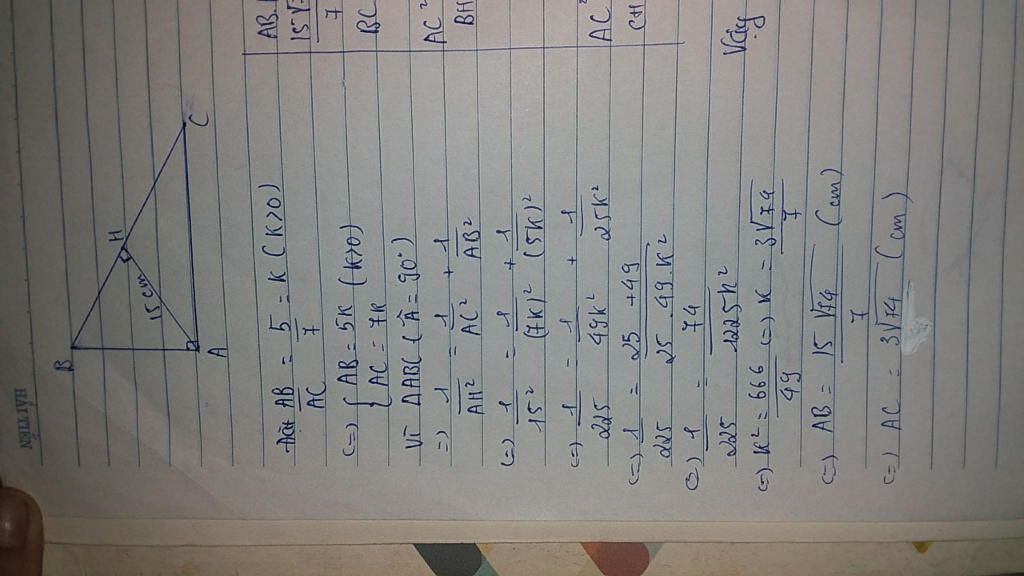 HẢI TIẾN
B
H
15 cm
A
C
Đặt AB/AC = 5/7 = K (K>0)
(=) { AB = 5K (K>0)
{ AC = 7K
Vì ΔABC (Â = 90°)
=) 1/AH² = 1/AC² + 1/AB²
(=) 1/15² = 1/(7K)² + 1/(5K)²
(=) 1/225 = 1/49K² + 1/25K²
(=) 1/225 = 25 + 49/25.49.K²
(=) 1/225 = 74/1225K²
(=) K² = 666/49 (=) K = 3√74/7
(=) AB = 15√74/7 (cm)
(=) AC = 3√74 (cm)
AB.
15√
7
BC
AC²
BH
AC²
CH
Vậy